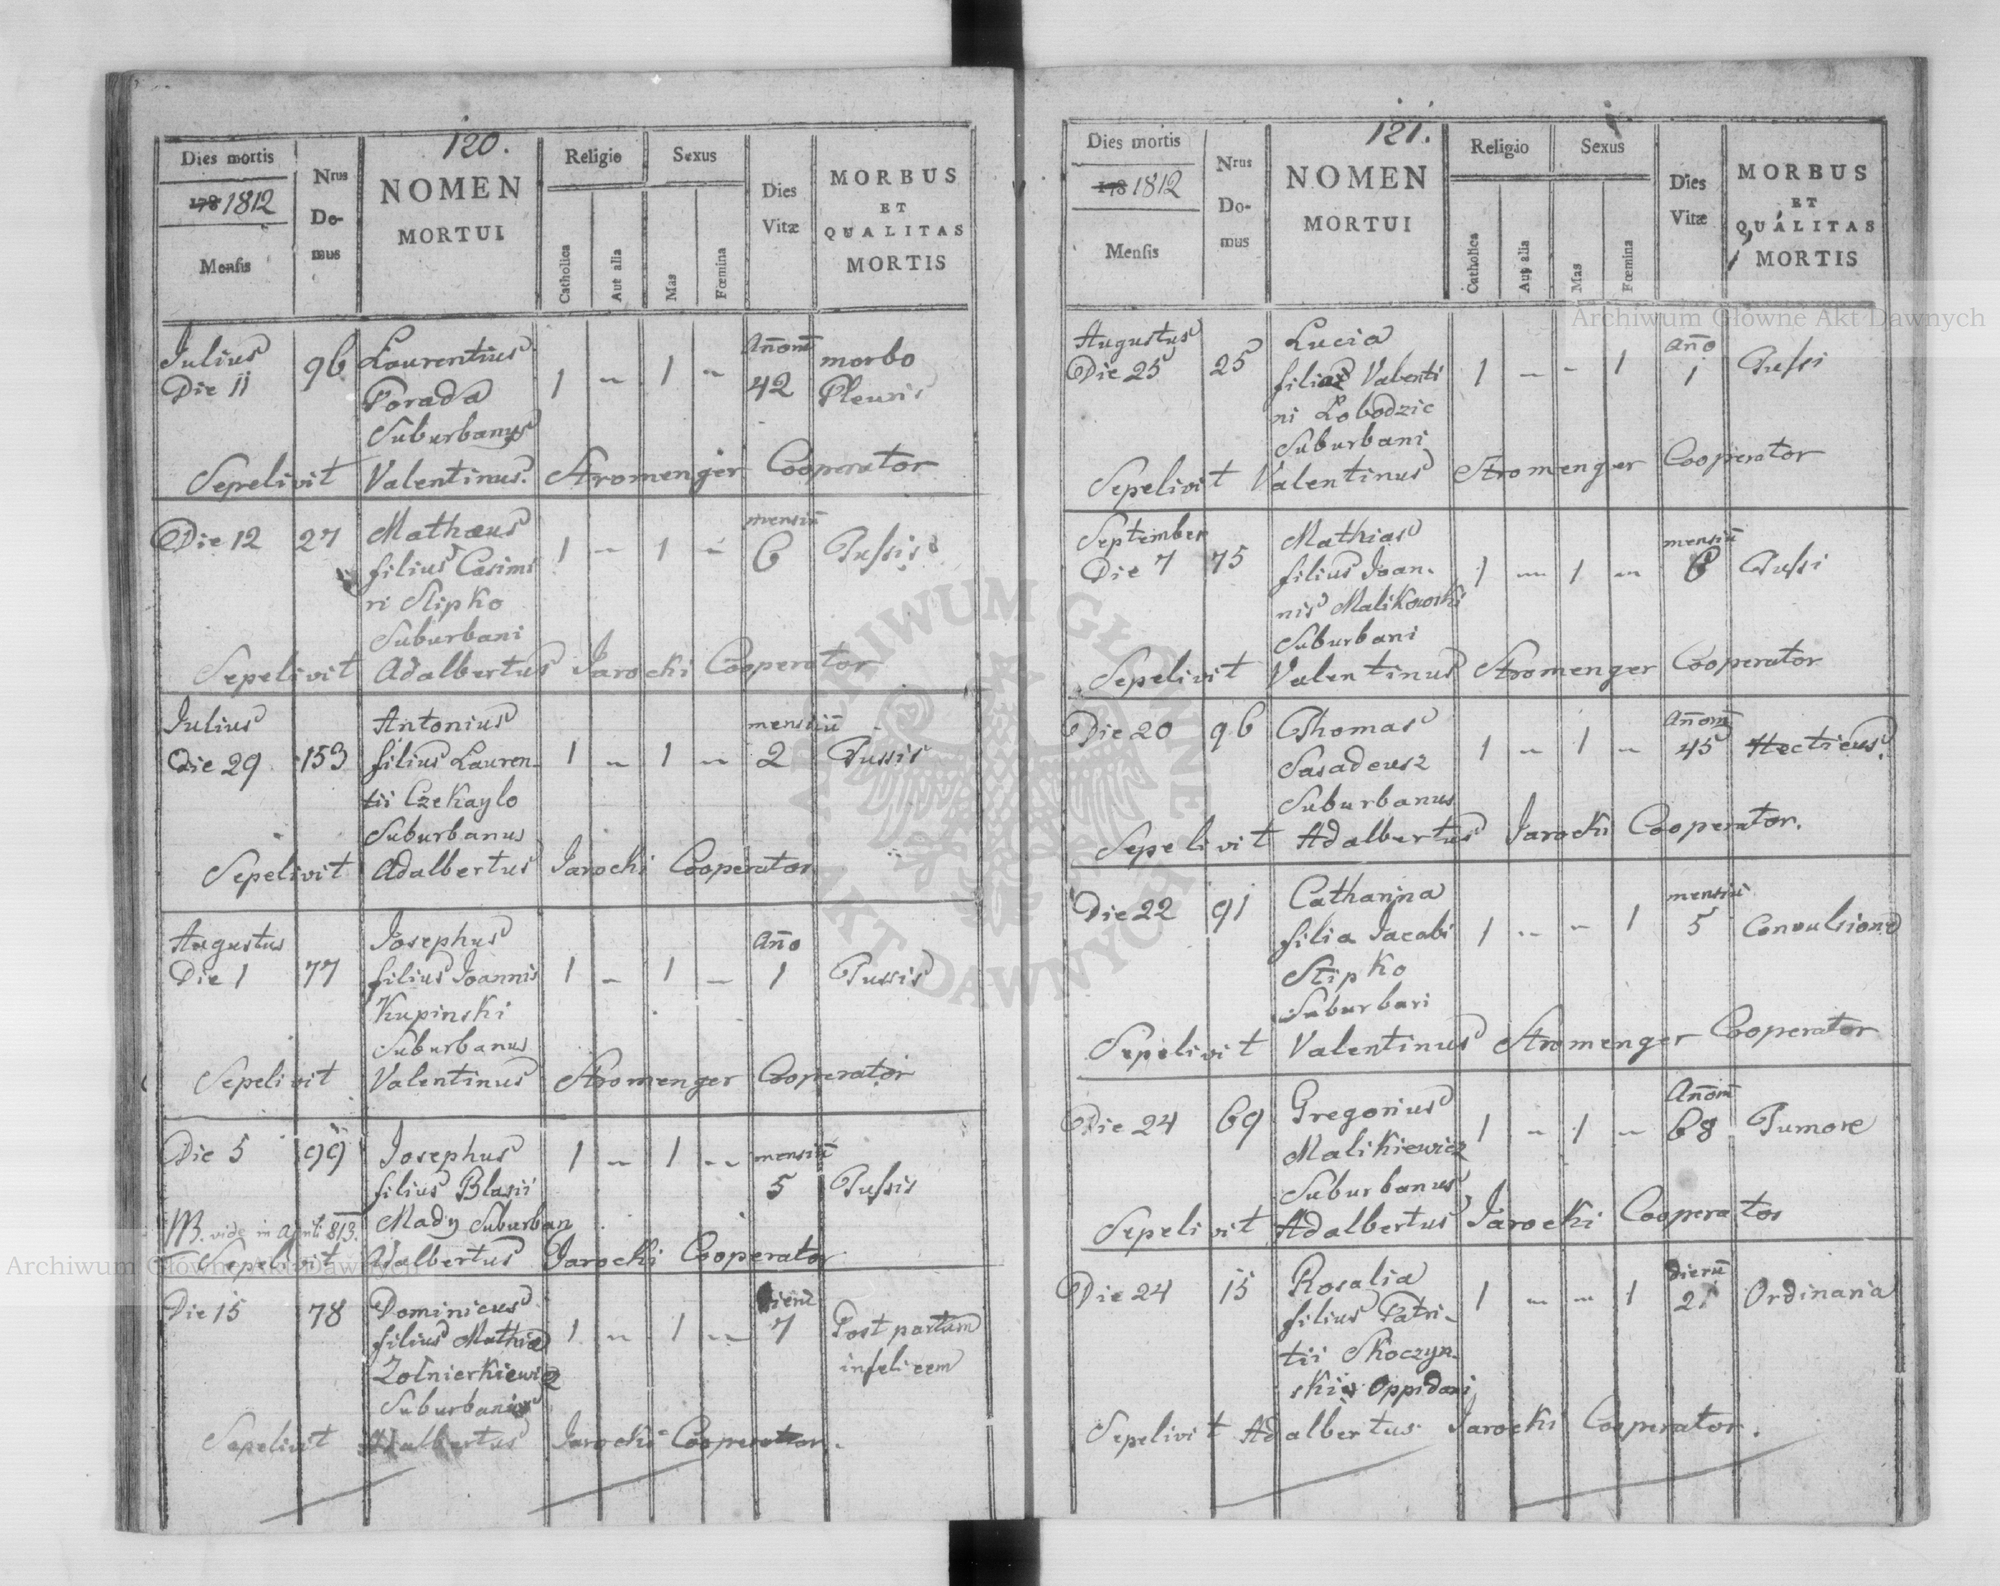 120.
Dies mortis
178 1812
Mensis
Nrus Domus
NOMEN
MORTUI
Religio
Catholica
Aut alia
Sexus
Mas
Fœmina
Dies
Vitæ
MORBUS
ET
QUALITAS
MORTIS
Julius Laurentius Añorũ morbo
Die 11 96 Porada 1 – 1 – 42 Pleuris
Suburbanus
Sepelivit Valentinus Stromenger Cooperator
Die 12 27 Mathæus 1 – 1 – mensiũ 6 Tussis
filius Casimi
ri Slipko
Suburbani
Sepelivit Adalbertus Jarocki Cooperator
Julius Antonius mensiũ
Die 29 153 filius Lauren- 1 – 1 – 2 Tussis
tii Czekaylo
Suburbanus
Sepelivit Adalbertus Jarocki Cooperator
Augustus Josephus Año
Die 1 77 filius Joannis 1 – 1 – 1 Tussis
Kupinski
Suburbanus
Sepelivit Valentinus Stromenger Cooperator
Die 5 99 Josephus 1 – 1 – mensiũ
filius Blasii 5 Tussis
vide in April 813. Mady Suburban
Sepelivit Adalbertus Jarocki Cooperator
Die 15 78 Dominicus dierũ
filius Mathiæ 1 – 1 – 7 Post partum
Zołnierkiewicz infelicem
Suburbanus
Sepelivit Adalbertus Jarocki Cooperator.
121.
Dies mortis
178 1812
Mensis
Nrus Domus
NOMEN
MORTUI
Religio
Catholica
Aut alia
Sexus
Mas
Fœmina
Dies
Vitæ
MORBUS
ET
QUALITAS
MORTIS
Augustus Lucia año
Die 25 25 filia Valenti 1 – – 1 1 Tussi
ni Lobodzic
Suburbani
Sepelivit Valentinus Stromenger Cooperator
September Mathias mensiũ
Die 7 75 filius Joan- 1 – 1 – 6 Tussi
nis Malikowski
Suburbani
Sepelivit Valentinus Stromenger Cooperator
Die 20 96 Thomas Añorũ
Sasadeusz 1 – 1 – 45 Hecticus
Suburbanus
Sepelivit Adalbertus Jarocki Cooperator.
Die 22 91 Catharina mensiũ
filia Jacobi 1 – – 1 5 Convulsione
Slipko
Suburbani
Sepelivit Valentinus Stromenger Cooperator
Die 24 69 Gregorius Añorũ
Malikiewicz 1 – 1 – 68 Tumore
Suburbanus
Sepelivit Adalbertus Jarocki Cooperator
Die 24 15 Rosalia dierũ
filius Patri- 1 – – 1 21 Ordinaria
tii Skoczyn-
skie Oppidani
Sepelivit Adalbertus Jarocki Cooperator.
Archiwum Główne Akt Dawnych
Archiwum Główne Akt Dawnych
ARCHIWUM GŁÓWNE AKT DAWNYCH